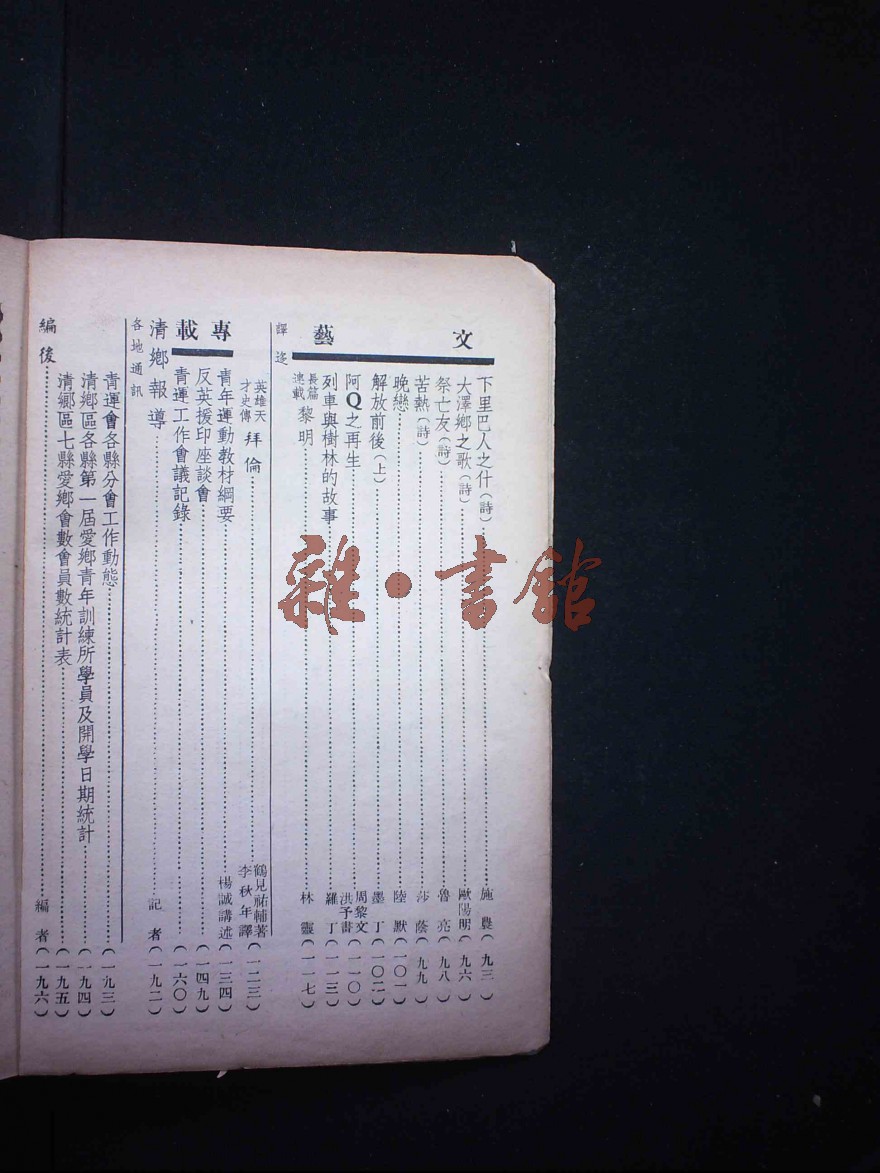 文藝
下里巴人之什(詩)……施農(九三)
大澤鄉之歌(詩)……歐陽明(九六)
祭亡友(詩)……魯亮(九八)
苦熱(詩)……莎蔭(九九)
晚戀……陸默(一〇一)
解放前後(上)……墨丁(一〇二)
阿Q之再生……周黎文 洪予書(一一〇)
列車與樹林的故事……羅丁(一一三)
長篇連載 黎明……林靈(一一七)
譯迻
英雄天才史傳 拜倫……鶴見祐輔著 李秋年譯(一二三)
專載
青年運動教材綱要……楊誠講述(一三四)
反英援印座談會……(一四九)
青運工作會議記錄……(一六〇)
清鄉報導……記者(一九二)
各地通訊
青運會各縣分會工作動態……(一九三)
清鄉區各縣第一屆愛鄉青年訓練所學員及開學日期統計……(一九四)
清鄉區七縣愛鄉會數會員數統計表……(一九五)
編後……編者(一九六)
雜·書館